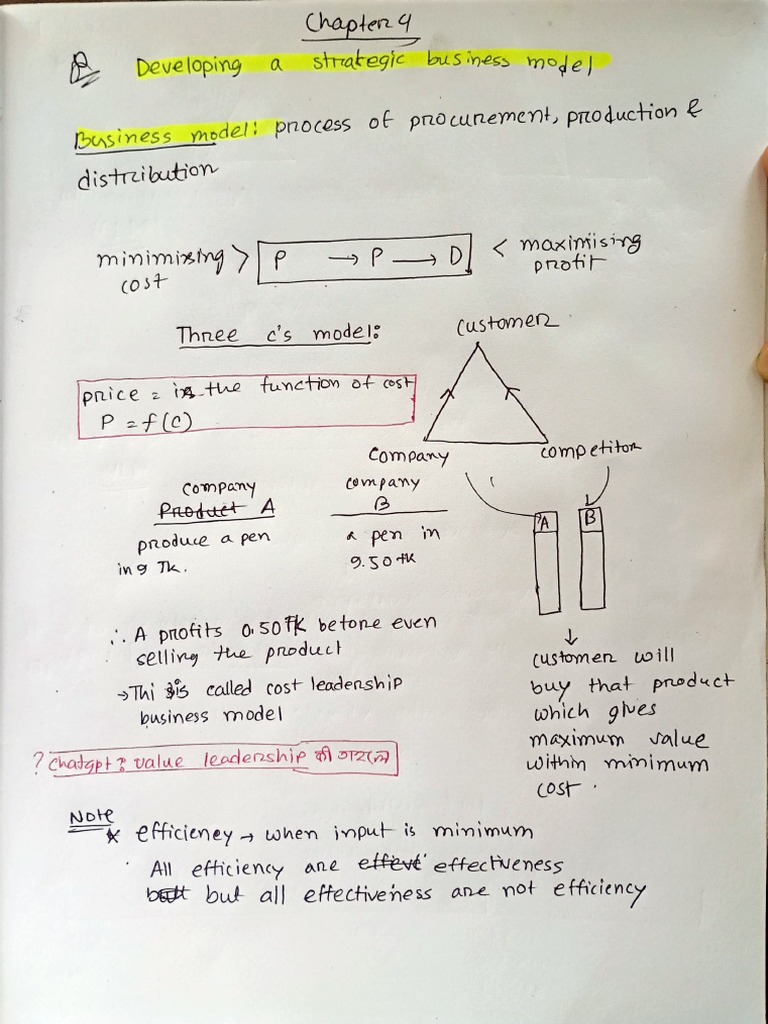 Chapter 4
Developing a strategic business model
Business model: process of procurement, production &
distribution
minimixing
cost
> P → P → D <
maximiising
profit
Three c's model:
customer
price = is the function of cost
P = f(C)
Company
competitor
company
Product A
produce a pen
in 9 Tk.
company
B
a pen in
9.50 tk
A
B
∴ A profits 0.50 TK before even
selling the product
→ Thi is called cost leadership
business model
customer will
buy that product
which gives
maximum value
within minimum
cost.
? Chatgpt: value leadership কী
Note
* efficieney → when input is minimum
All efficiency are effevt effectiveness
but all effectiveness are not efficiency